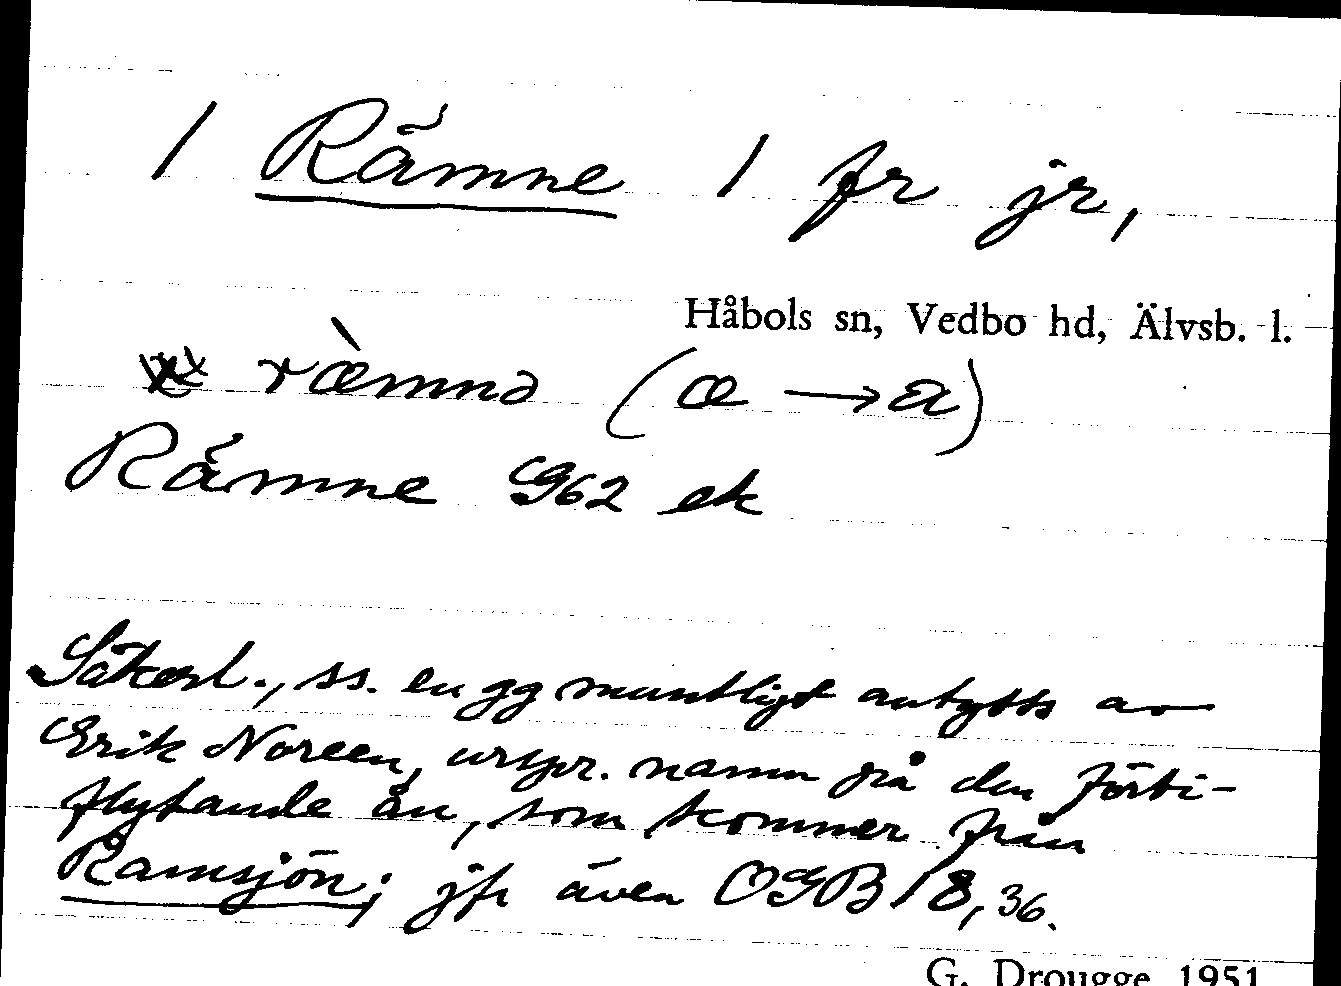 / Rämne / fr jr,
Håbols sn, Vedbo hd, Älvsb. l.
ræ̀mnə (æ → a)
Rämne G62 ek
Säkerl., ss. en gg muntligt antytts av
Erik Noreen, urspr. namn på den förbi-
flytande ån, som kommer från
Ramsjön; jfr även OGB 18, 36.
G. Drougge 1951